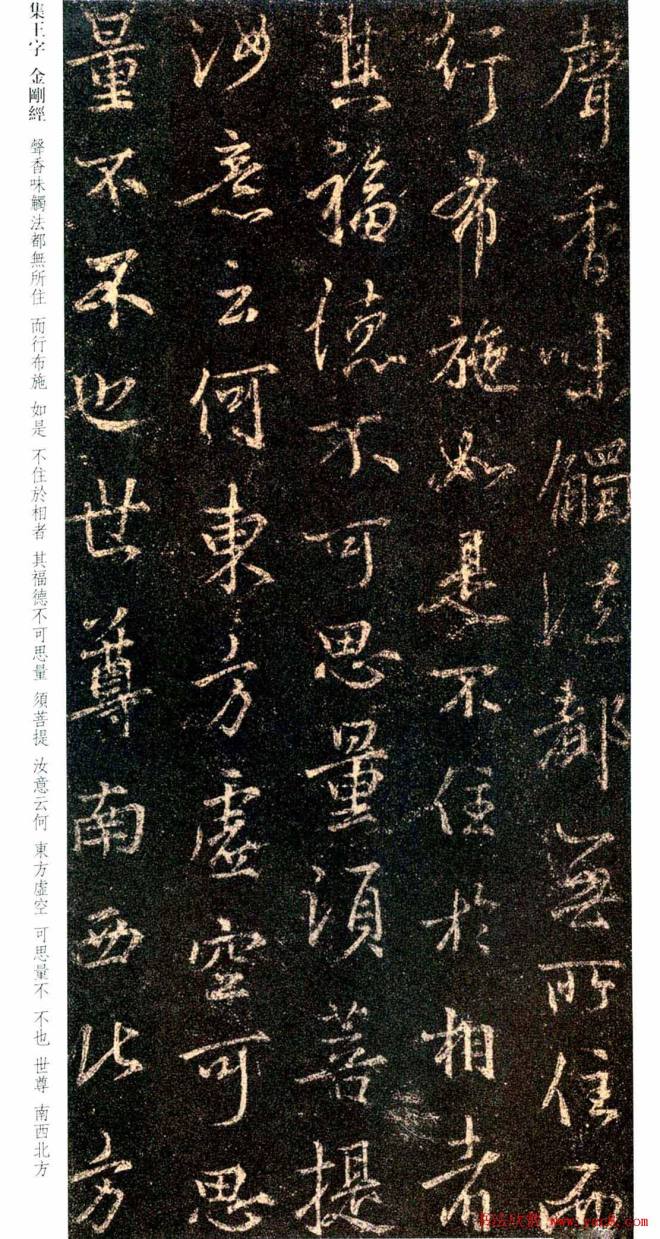 聲香味觸法都無所住而
行布施如是不住於相者
其福德不可思量須菩提
汝意云何東方虛空可思
量不不也世尊南西北方
集王字 金剛經 聲香味觸法都無所住 而行布施 如是 不住於相者 其福德不可思量 須菩提 汝意云何 東方虛空 可思量不 不也 世尊 南西北方
书法欣赏 www.yac8.com